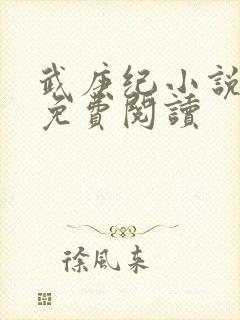 武庚纪小說
免費閱讀
徐風來